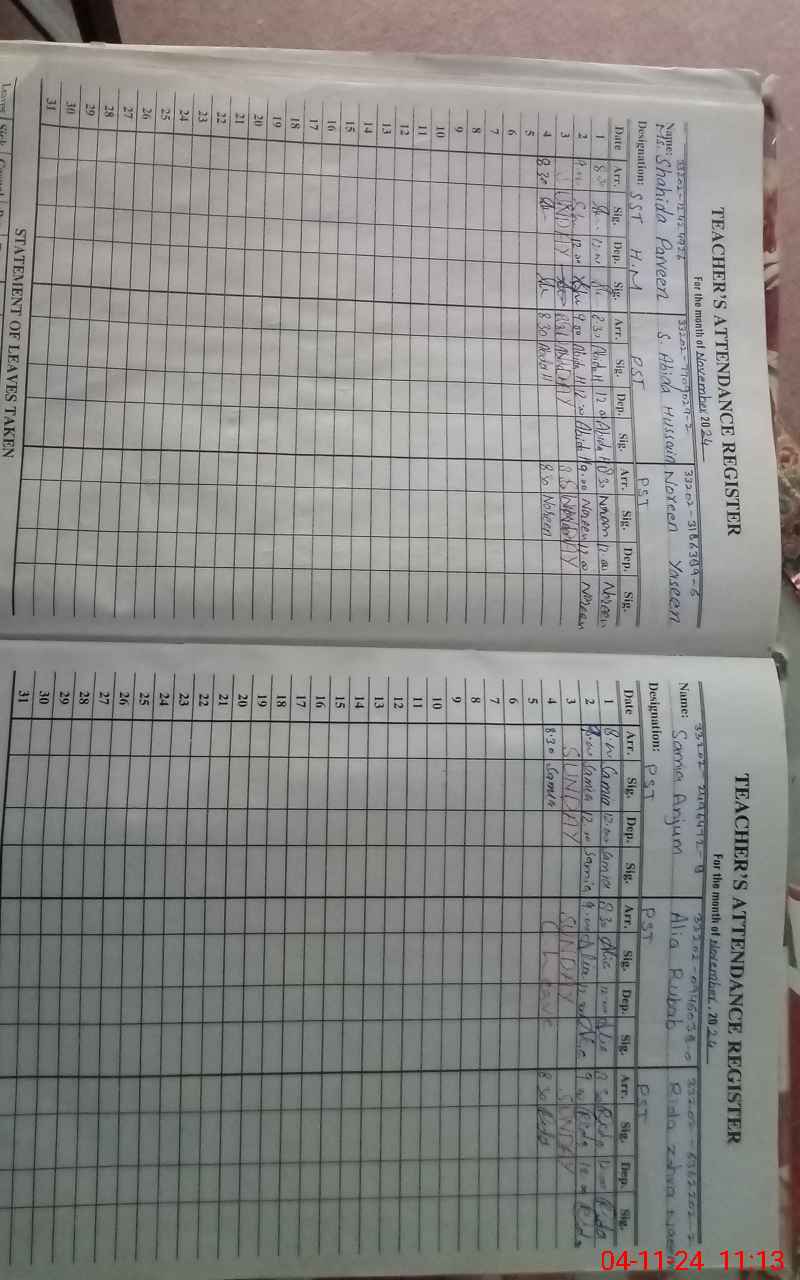 TEACHER'S ATTENDANCE REGISTER
For the month of November 2024
33202-7709029-2 33202-3186389-6
Name: Ms. Shahida Parveen S. Abida Hussain Noreen Yaseen
Designation: SST H.M PST PST
Date Arr. Sig. Dep. Sig. Arr. Sig. Dep. Sig. Arr. Sig. Dep. Sig.
1 8.30 12.00 8.30 Abida H 12.00 Abida H 8.30 Noreen 12.00 Noreen
2 9.00 12.00 9.00 Abida H 12.00 Abida H 9.00 Noreen 12.00 Noreen
3 SUNDAY SUNDAY SUNDAY
4 8.30 8.30 Abida H 8.30 Noreen
5
6
7
8
9
10
11
12
13
14
15
16
17
18
19
20
21
22
23
24
25
26
27
28
29
30
31
STATEMENT OF LEAVES TAKEN
TEACHER'S ATTENDANCE REGISTER
For the month of November, 2024
Name: Samia Anjum Alia Rubab Rida Zahra
Designation: PST PST PST
Date Arr. Sig. Dep. Sig. Arr. Sig. Dep. Sig. Arr. Sig. Dep. Sig.
1 Samia 12.00 Samia 8.30 Alia 12.00 Alia 8.30 Rida 12.00 Rida
2 9.00 Samia 12.00 Samia 9.00 Alia 12.00 Alia 9.00 Rida 12.00 Rida
3 SUNDAY SUNDAY SUNDAY
4 8.30 Samia Leave 8.30 Rida
5
6
7
8
9
10
11
12
13
14
15
16
17
18
19
20
21
22
23
24
25
26
27
28
29
30
31
04-11-24 11:13